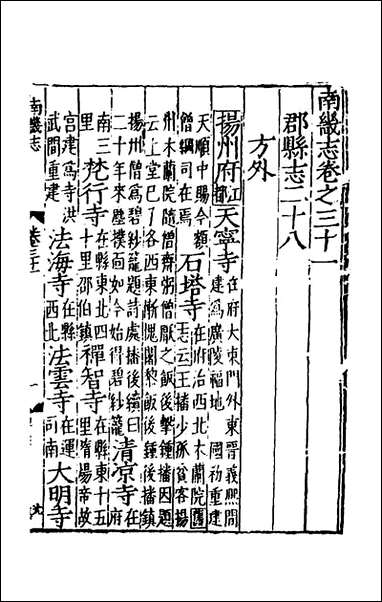 南畿志卷之三十一
郡縣志二十八
方外
揚州府江都天寧寺在府大東門外東晉義熙間建爲廣陵福地國初重建
天順中賜今額僧綱司在焉石塔寺在府治西北木蘭院舊志云王播少孤貧客揚
州木蘭院隨僧齋粥僧厭之飯後擊鍾播因題云上堂已了各西東慚愧闍黎飯後鍾後播鎮
揚州僧爲碧紗籠題詩處播後續曰二十年來塵撲面如今始得碧紗籠清凉寺在府
南三里梵行寺在縣東北四十里邵伯鎮禪智寺在縣東十五里隋煬帝故
宫建爲寺洪武間重建法海寺在縣西北法雲寺在運司南大明寺
南畿志
卷三十一
一